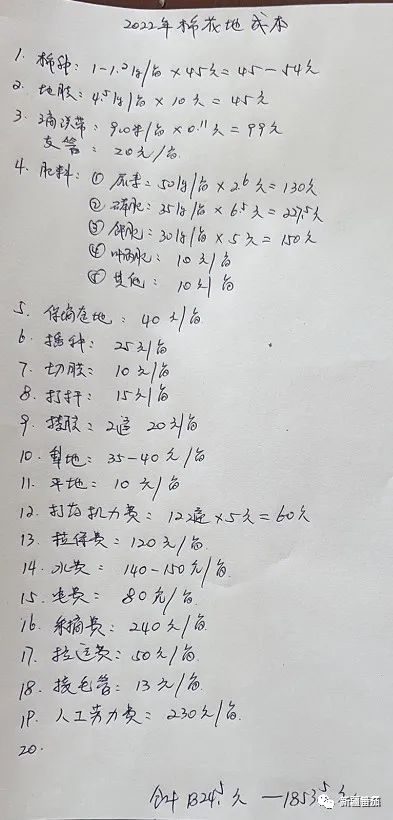 2022年棉花地成本
1. 棉种: 1-1.2kg/亩×45元=45-54元
2. 地膜: 4.5kg/亩×10元=45元
3. 滴灌带: 900米/亩×0.11元=99元
支管: 20元/亩.
4. 肥料: ① 尿素: 50kg/亩×2.6元=130元
② 磷肥: 35kg/亩×6.5元=227.5元
③ 钾肥: 30kg/亩×5元=150元
④ 叶面肥: 10元/亩
⑤ 其他: 10元/亩
5. 地: 40元/亩.
6. 播种: 25元/亩
7. 切膜: 10元/亩
8. 打杆: 15元/亩
9. 搂膜: 2遍 20元/亩
10. 犁地: 35-40元/亩
11. 平地: 10元/亩
12. 打药机力费: 12遍×5元=60元
13. 费: 120元/亩.
14. 水费: 140-150元/亩.
15. 电费: 80元/亩.
16. 采摘费: 240元/亩.
17. 拉运费: 50元/亩.
18. 接毛管: 13元/亩.
19. 人工劳力费: 230元/亩.
20.
合计 1824.5元-1853.5元.
新疆番茄